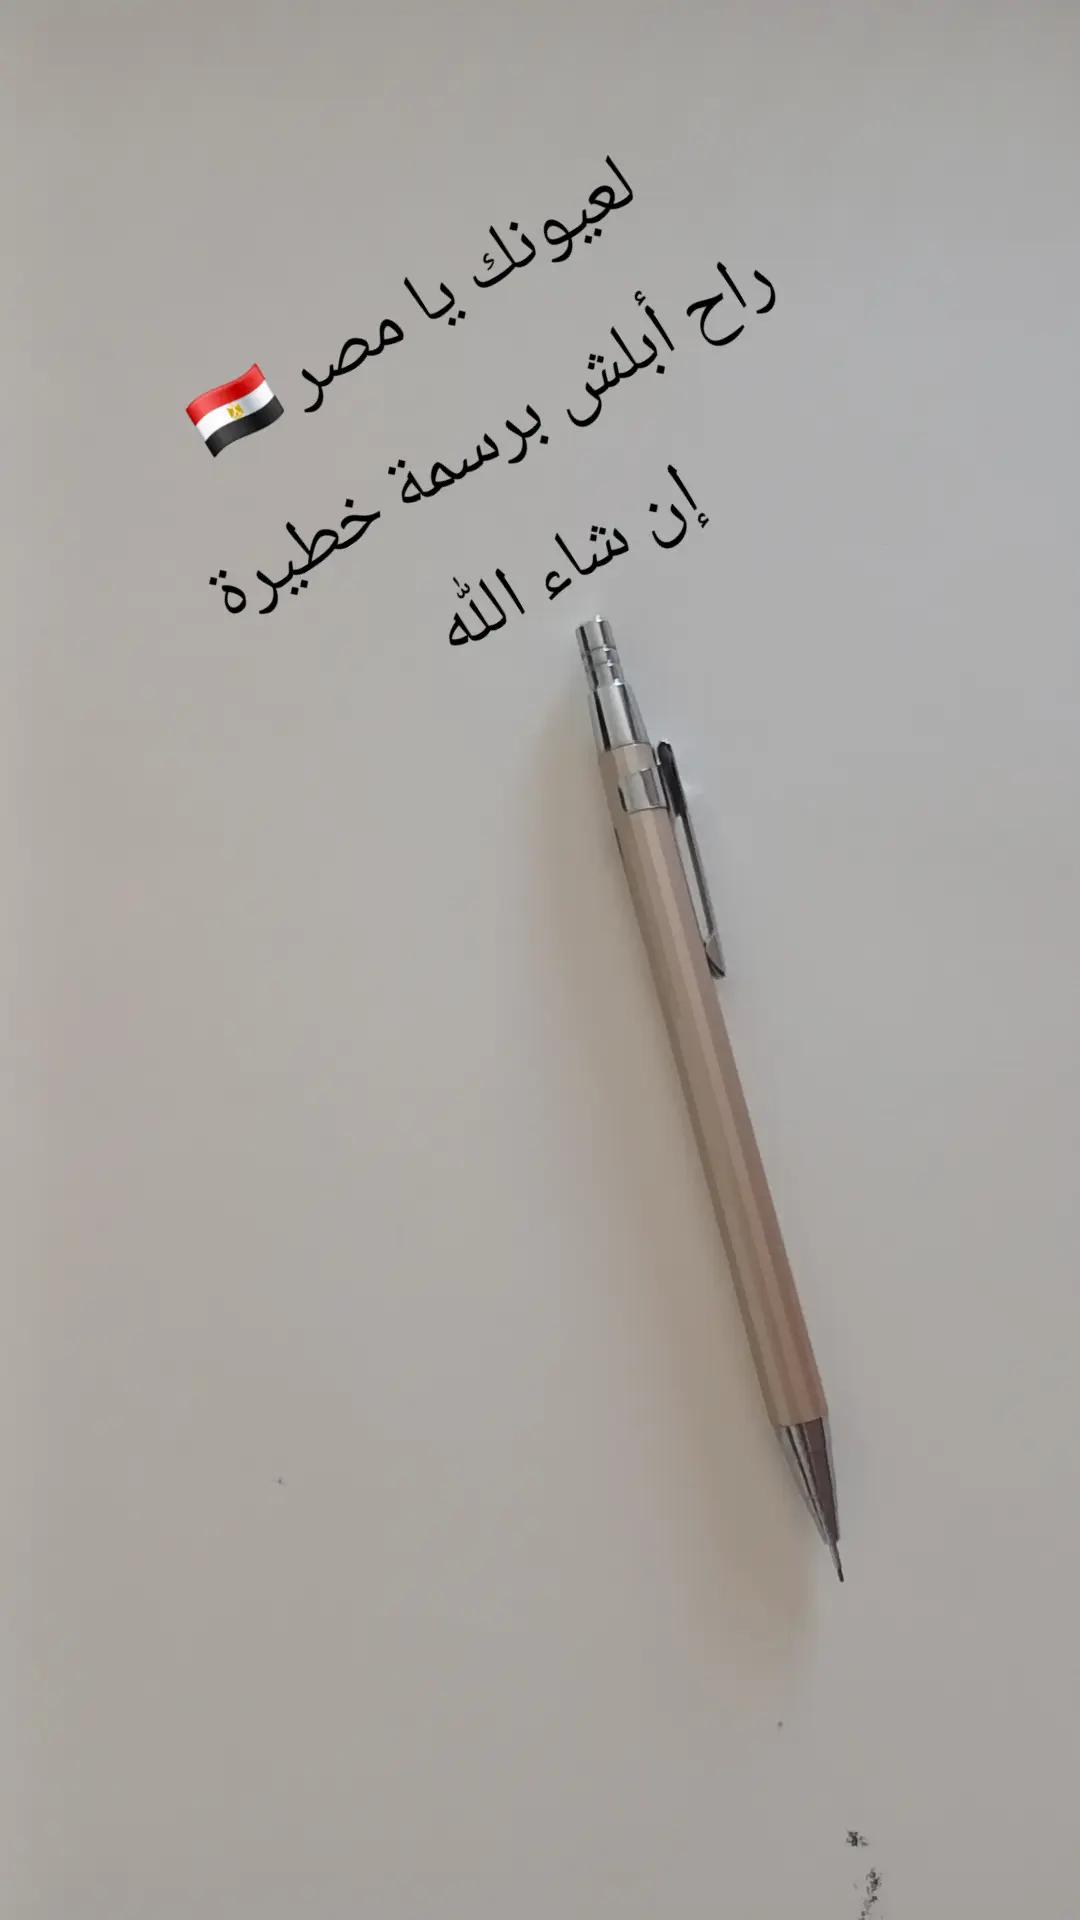 لعيونك يا مصر 🇪🇬
راح أبلش برسمة خطيرة
إن شاء الله